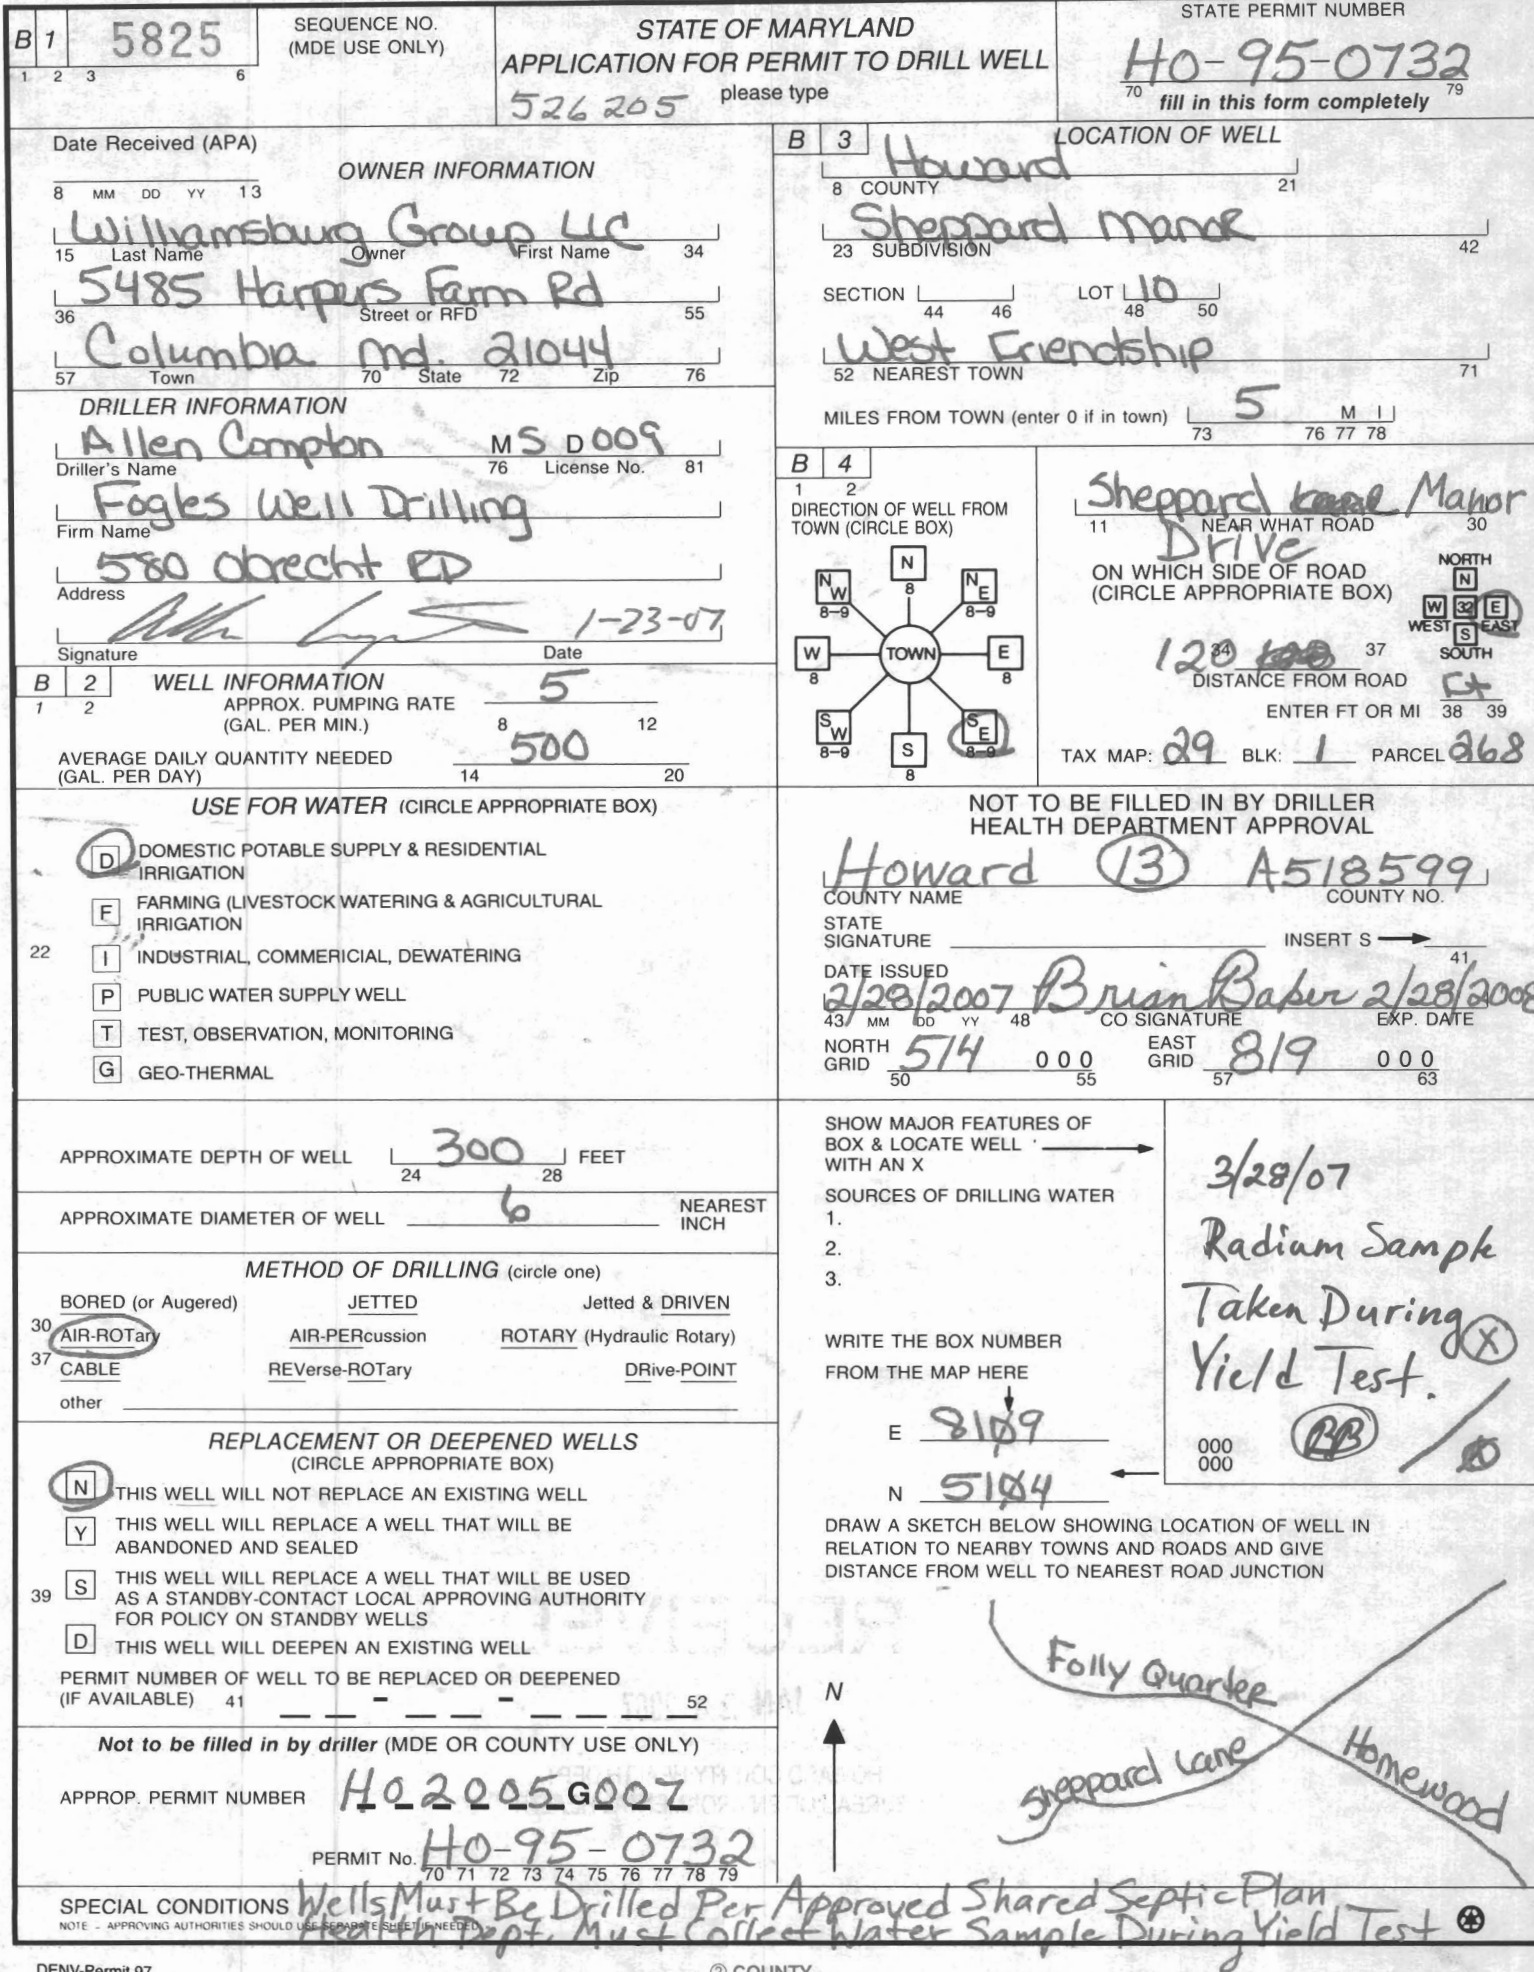 B 1 5825
1 2 3 6
SEQUENCE NO.
(MDE USE ONLY)
STATE OF MARYLAND
APPLICATION FOR PERMIT TO DRILL WELL
please type
526205
STATE PERMIT NUMBER
HO-95-0732
70 79
fill in this form completely
Date Received (APA)
8 MM DD YY 13
OWNER INFORMATION
Williamsburg Group LLC
15 Last Name Owner First Name 34
5485 Harpers Farm Rd
36 Street or RFD 55
Columbia Md. 21044
57 Town 70 State 72 Zip 76
DRILLER INFORMATION
Allen Compton M S D 009
Driller's Name 76 License No. 81
Fogles Well Drilling
Firm Name
580 Obrecht RD
Address
1-23-07
Signature Date
B 2 WELL INFORMATION
1 2
APPROX. PUMPING RATE
(GAL. PER MIN.) 5
8 12
AVERAGE DAILY QUANTITY NEEDED
(GAL. PER DAY) 500
14 20
USE FOR WATER (CIRCLE APPROPRIATE BOX)
D DOMESTIC POTABLE SUPPLY & RESIDENTIAL
IRRIGATION
F FARMING (LIVESTOCK WATERING & AGRICULTURAL
IRRIGATION
22
I INDUSTRIAL, COMMERICIAL, DEWATERING
P PUBLIC WATER SUPPLY WELL
T TEST, OBSERVATION, MONITORING
G GEO-THERMAL
APPROXIMATE DEPTH OF WELL 300 FEET
24 28
APPROXIMATE DIAMETER OF WELL 6 NEAREST
INCH
METHOD OF DRILLING (circle one)
BORED (or Augered) JETTED Jetted & DRIVEN
30 AIR-ROTary AIR-PERcussion ROTARY (Hydraulic Rotary)
37 CABLE REVerse-ROTary DRive-POINT
other
REPLACEMENT OR DEEPENED WELLS
(CIRCLE APPROPRIATE BOX)
N THIS WELL WILL NOT REPLACE AN EXISTING WELL
Y THIS WELL WILL REPLACE A WELL THAT WILL BE
ABANDONED AND SEALED
39 S THIS WELL WILL REPLACE A WELL THAT WILL BE USED
AS A STANDBY-CONTACT LOCAL APPROVING AUTHORITY
FOR POLICY ON STANDBY WELLS
D THIS WELL WILL DEEPEN AN EXISTING WELL
PERMIT NUMBER OF WELL TO BE REPLACED OR DEEPENED
(IF AVAILABLE) 41 - - 52
Not to be filled in by driller (MDE OR COUNTY USE ONLY)
APPROP. PERMIT NUMBER HO2005G007
PERMIT No. HO-95-0732
70 71 72 73 74 75 76 77 78 79
B 3 LOCATION OF WELL
Howard
8 COUNTY 21
Sheppard Manor
23 SUBDIVISION 42
SECTION LOT 10
44 46 48 50
West Friendship
52 NEAREST TOWN 71
MILES FROM TOWN (enter 0 if in town) 5 M I
73 76 77 78
B 4
1 2
DIRECTION OF WELL FROM
TOWN (CIRCLE BOX)
N
8
NW
8-9
NE
8-9
W
8
TOWN
E
8
SW
8-9
S
8
SE
8-9
Sheppard Lane Manor
11 NEAR WHAT ROAD 30
Drive
ON WHICH SIDE OF ROAD
(CIRCLE APPROPRIATE BOX)
NORTH
N
W 32 E
WEST EAST
S
SOUTH
120
34 37
DISTANCE FROM ROAD
ENTER FT OR MI Ft
38 39
TAX MAP: 29 BLK: 1 PARCEL 268
NOT TO BE FILLED IN BY DRILLER
HEALTH DEPARTMENT APPROVAL
Howard 13 A518599
COUNTY NAME COUNTY NO.
STATE
SIGNATURE INSERT S
41
DATE ISSUED
2/28/2007 Brian Baker 2/28/2008
43 MM DD YY 48 CO SIGNATURE EXP. DATE
NORTH
GRID 514 000
50 55
EAST
GRID 819 000
57 63
SHOW MAJOR FEATURES OF
BOX & LOCATE WELL
WITH AN X
SOURCES OF DRILLING WATER
1.
2.
3.
WRITE THE BOX NUMBER
FROM THE MAP HERE
E 8109
N 5104
3/28/07
Radium Sample
Taken During
Yield Test.
X
BB
000
000
DRAW A SKETCH BELOW SHOWING LOCATION OF WELL IN
RELATION TO NEARBY TOWNS AND ROADS AND GIVE
DISTANCE FROM WELL TO NEAREST ROAD JUNCTION
N
Folly Quarter
Sheppard Lane
Homewood
SPECIAL CONDITIONS Wells Must Be Drilled Per Approved Shared Septic Plan
NOTE - APPROVING AUTHORITIES SHOULD USE SEPARATE SHEET IF NEEDED
Health Dept. Must Collect Water Sample During Yield Test
DENV-Permit 97
② COUNTY